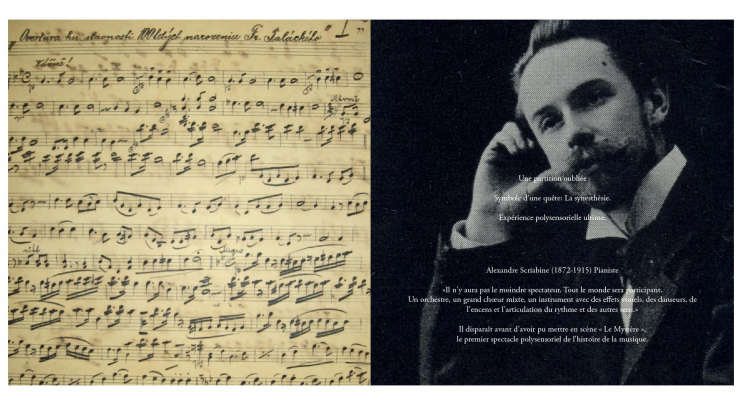 „Overtura ku slavnosti 100letých narozenin Fr. Palackého"
Une partition oubliée
Symbole d'une quête: La synesthésie.
Expérience polysensorielle ultime.
Alexandre Scriabine (1872-1915) Pianiste
«Il n'y aura pas le moindre spectateur. Tout le monde sera participant.
Un orchestre, un grand chœur mixte, un instrument avec des effets visuels, des danseurs, de
l'encens et l'articulation du rythme et des autres sens.»
Il disparaît avant d'avoir pu mettre en scène « Le Mystère »,
le premier spectacle polysensoriel de l'histoire de la musique.